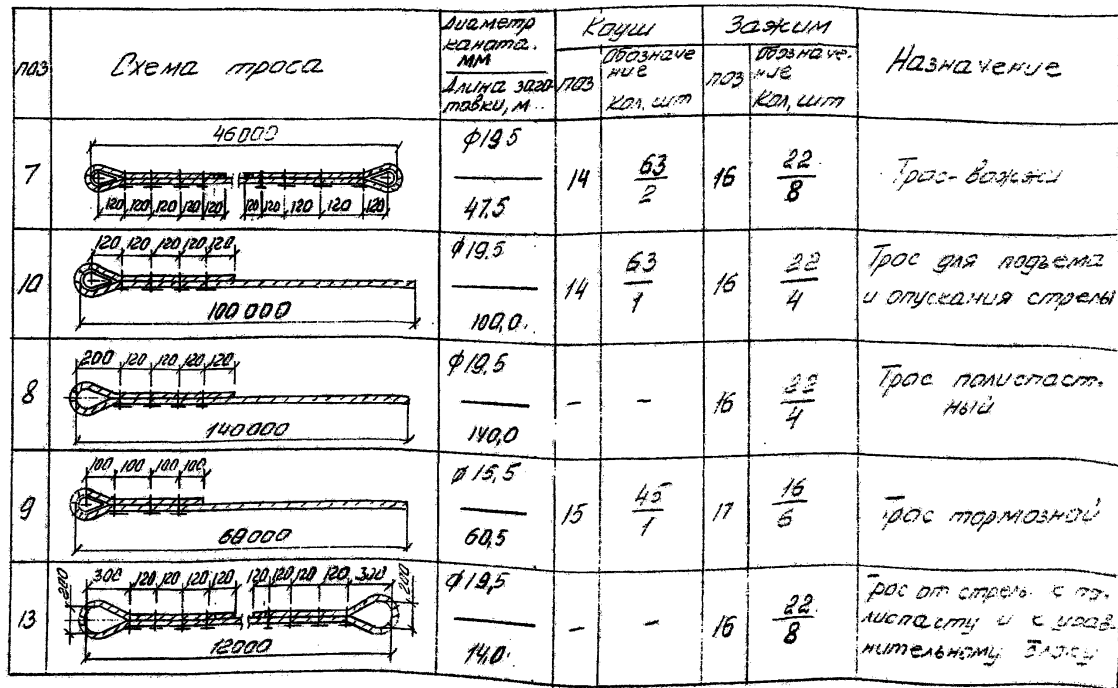 поз
Схема троса
Диаметр
каната,
мм
Длина заго-
товки, м.
Коуш
поз
Обозначе
ние
Кол, шт
Зажим
поз
Обозначе-
ние
Кол, шт
Назначение
7
46000
120 120 120 120 120 120 120 120 120 120
ϕ19.5
47.5
14
63
2
16
22
8
Трос-вожжи
10
120 120 120 120 120
100 000
ϕ19.5
100,0.
14
63
1
16
22
4
Трос для подъема
и опускания стрелы
8
200 120 120 120 120
140000
ϕ19.5
140,0
-
-
16
22
4
Трос полиспаст-
ный
9
100 100 100 100
ϕ15,5
60,5
15
45
1
17
16
Трос тормозной
13
200 300 120 120 120 120 120 120 120 120 300 200
12000
ϕ19,5
14,0.
-
-
16
22
8
Трос от стрелы к по-
лиспасту и к урав-
нительному блоку